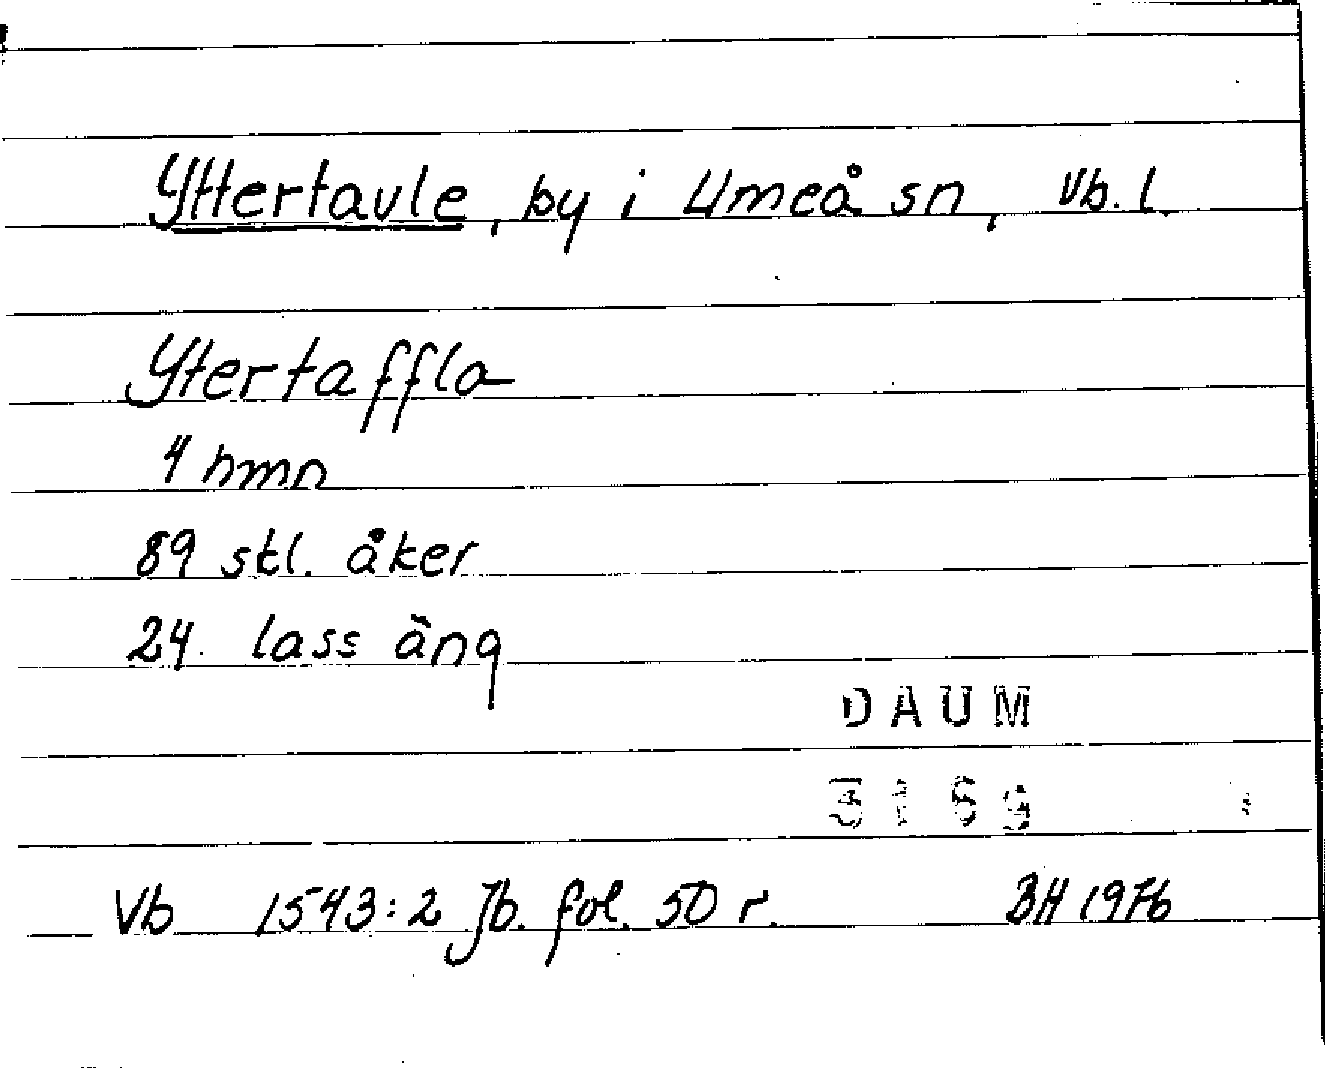 Yttertavle, by i Umeå sn, Vb. l.
Ytertaffla
4 hmn
89 stl. åker
24. lass äng
DAUM
3169
Vb 1543:2 Jb. fol. 50 r. BH 1976